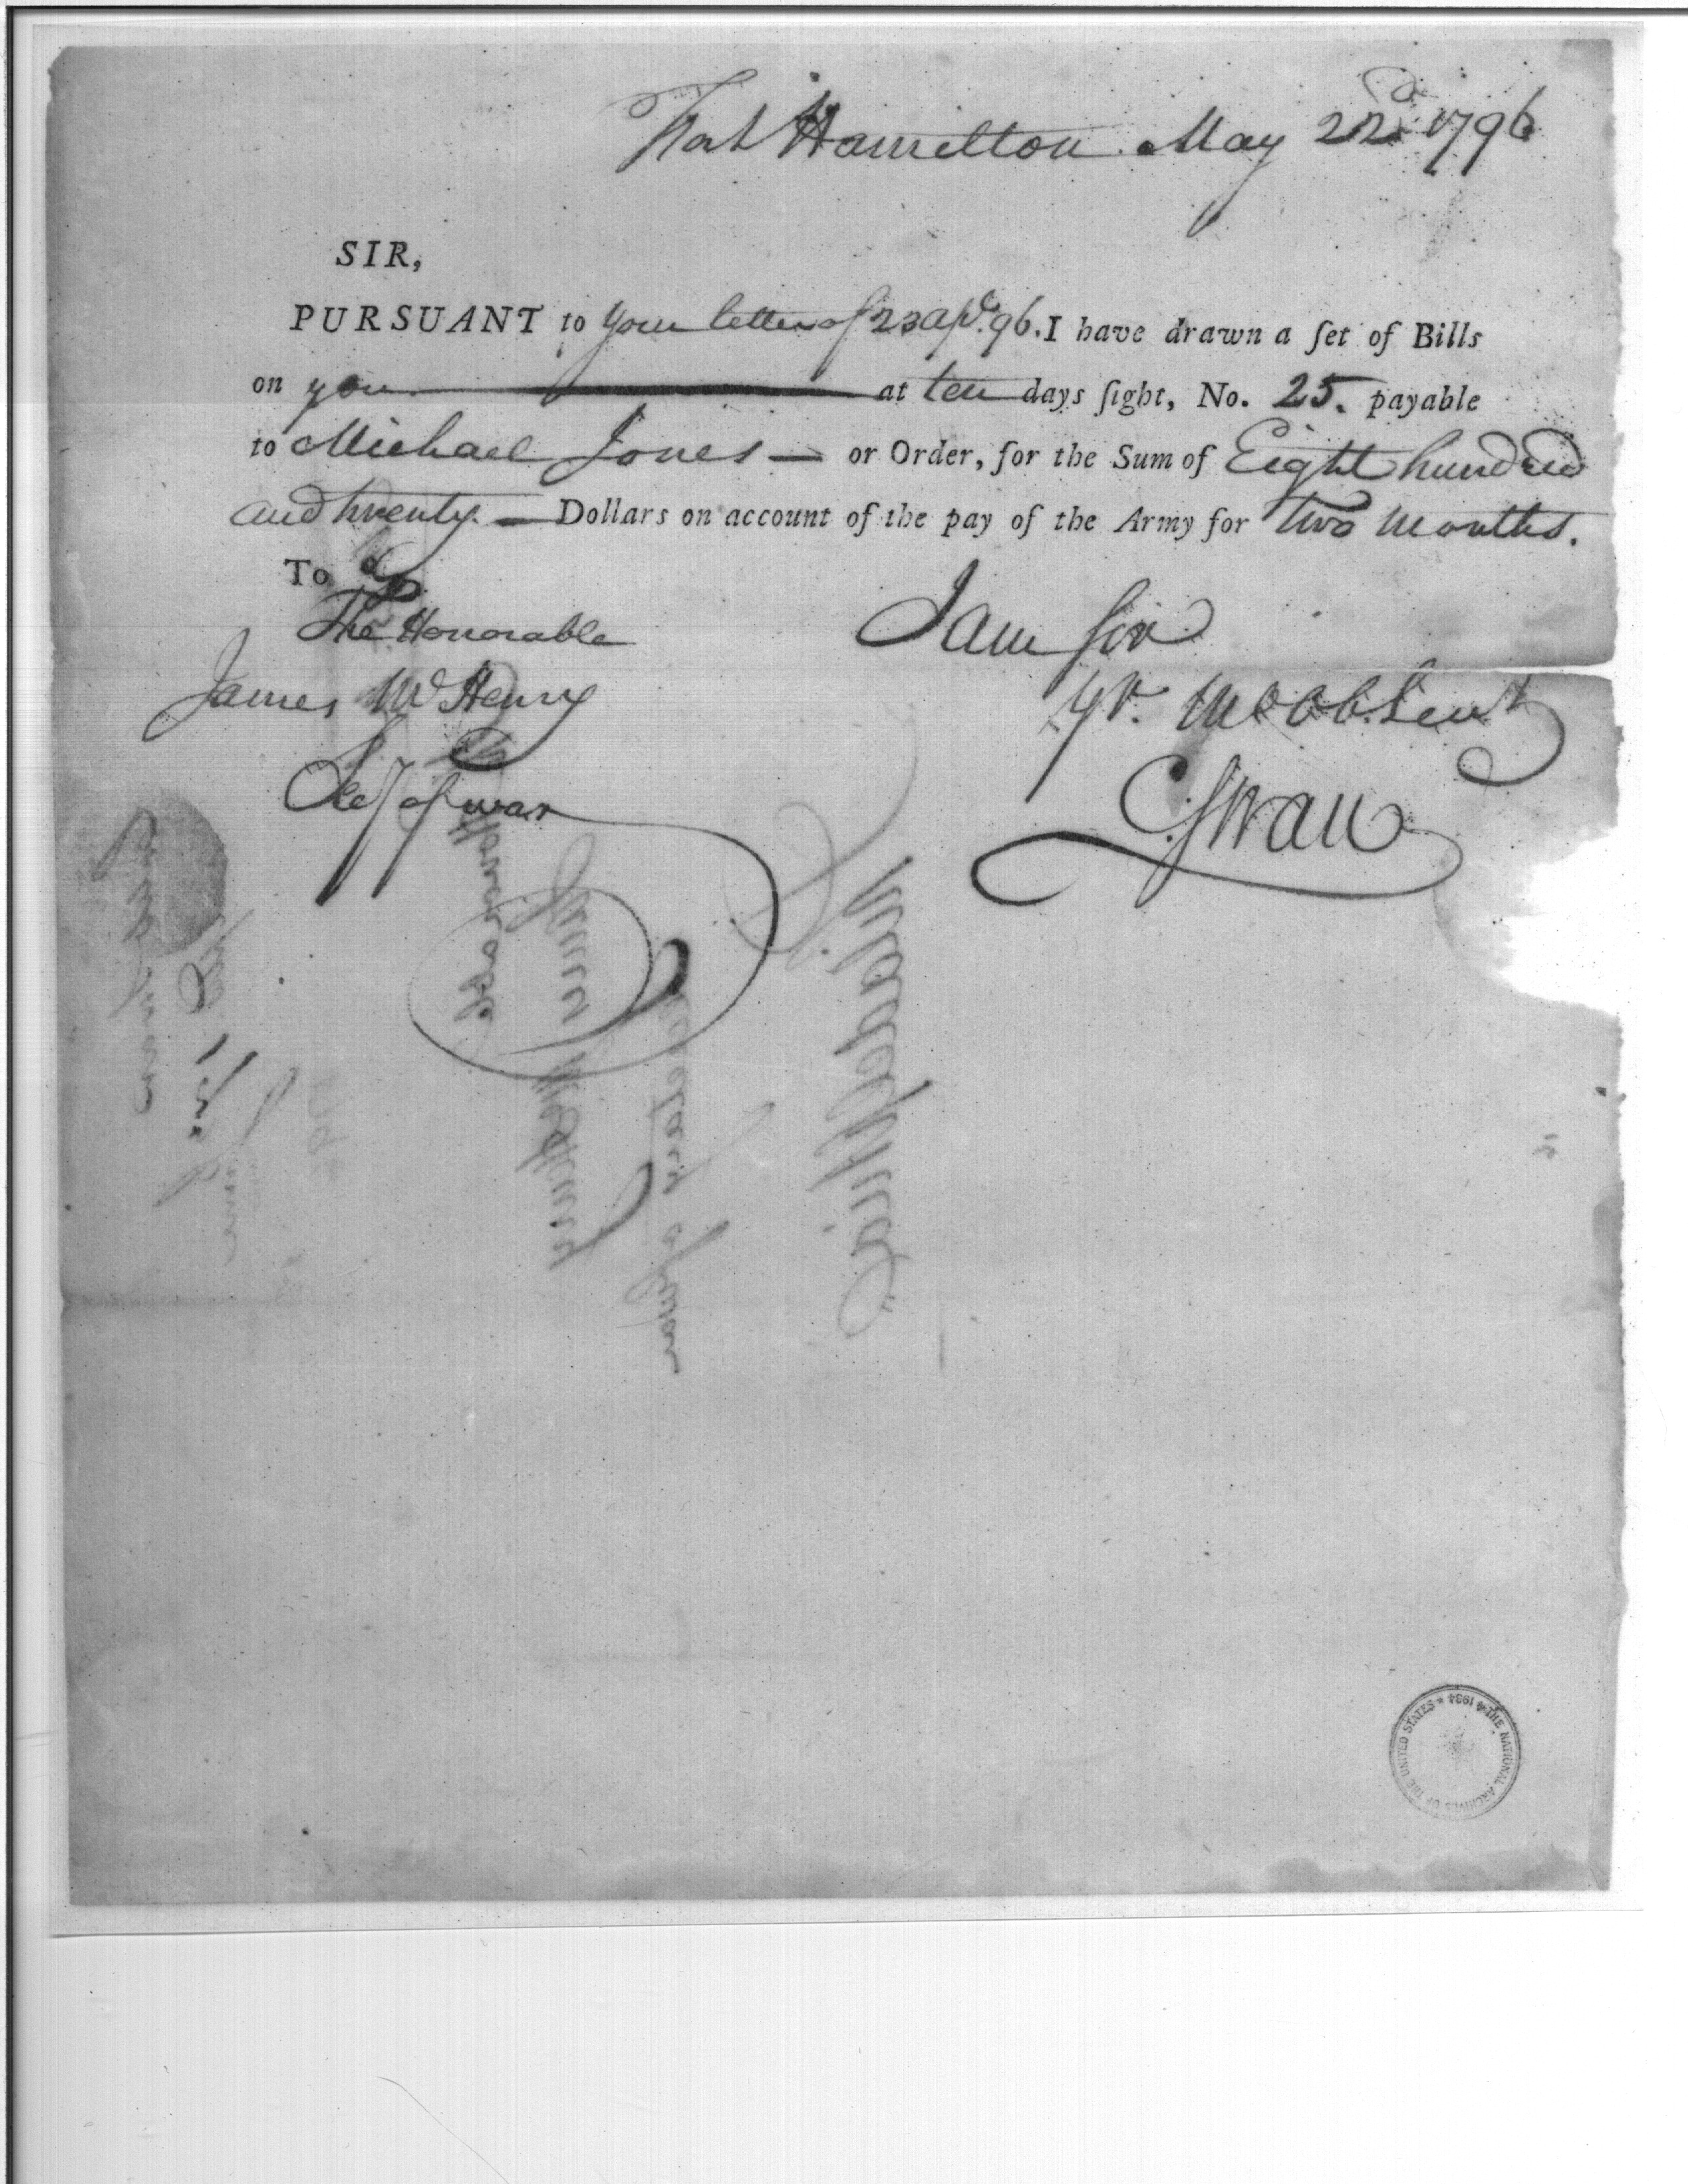 Fort Hamilton May 22d 1796
SIR,
PURSUANT to your letter of 23 apl. 96. I have drawn a ſet of Bills
on you at ten days ſight, No. 25. payable
to Michael Jones — or Order, ſor the Sum of Eight hundred
and twenty. — Dollars on account of the pay of the Army for two months.
To
The Honorable
James McHenry
Secy of war
I am Sir
yr. mo ob. Servt
C. Swan
THE NATIONAL ARCHIVES OF THE UNITED STATES * 1934 *